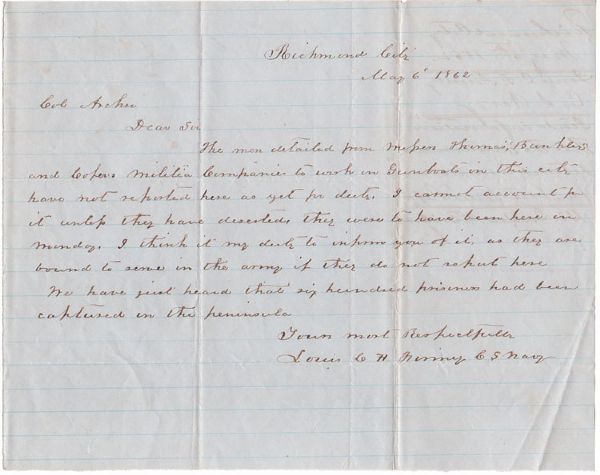 Richmond City
May 6th 1862
Col Archer
Dear Sir
The men detailed from messrs Thomas, 
and Militia Companies to work in Gunboats in this city
have not reported here as yet for duty, I cannot account for
it unless they have deserted, they were to have been here on
monday. I think it my duty to inform you of it, as they are
bound to serve in the army if they do not report here
We have just heard that six hundred prisoners had been
captured in the peninsula
Yours most Respectfully
Louis C H C S Navy